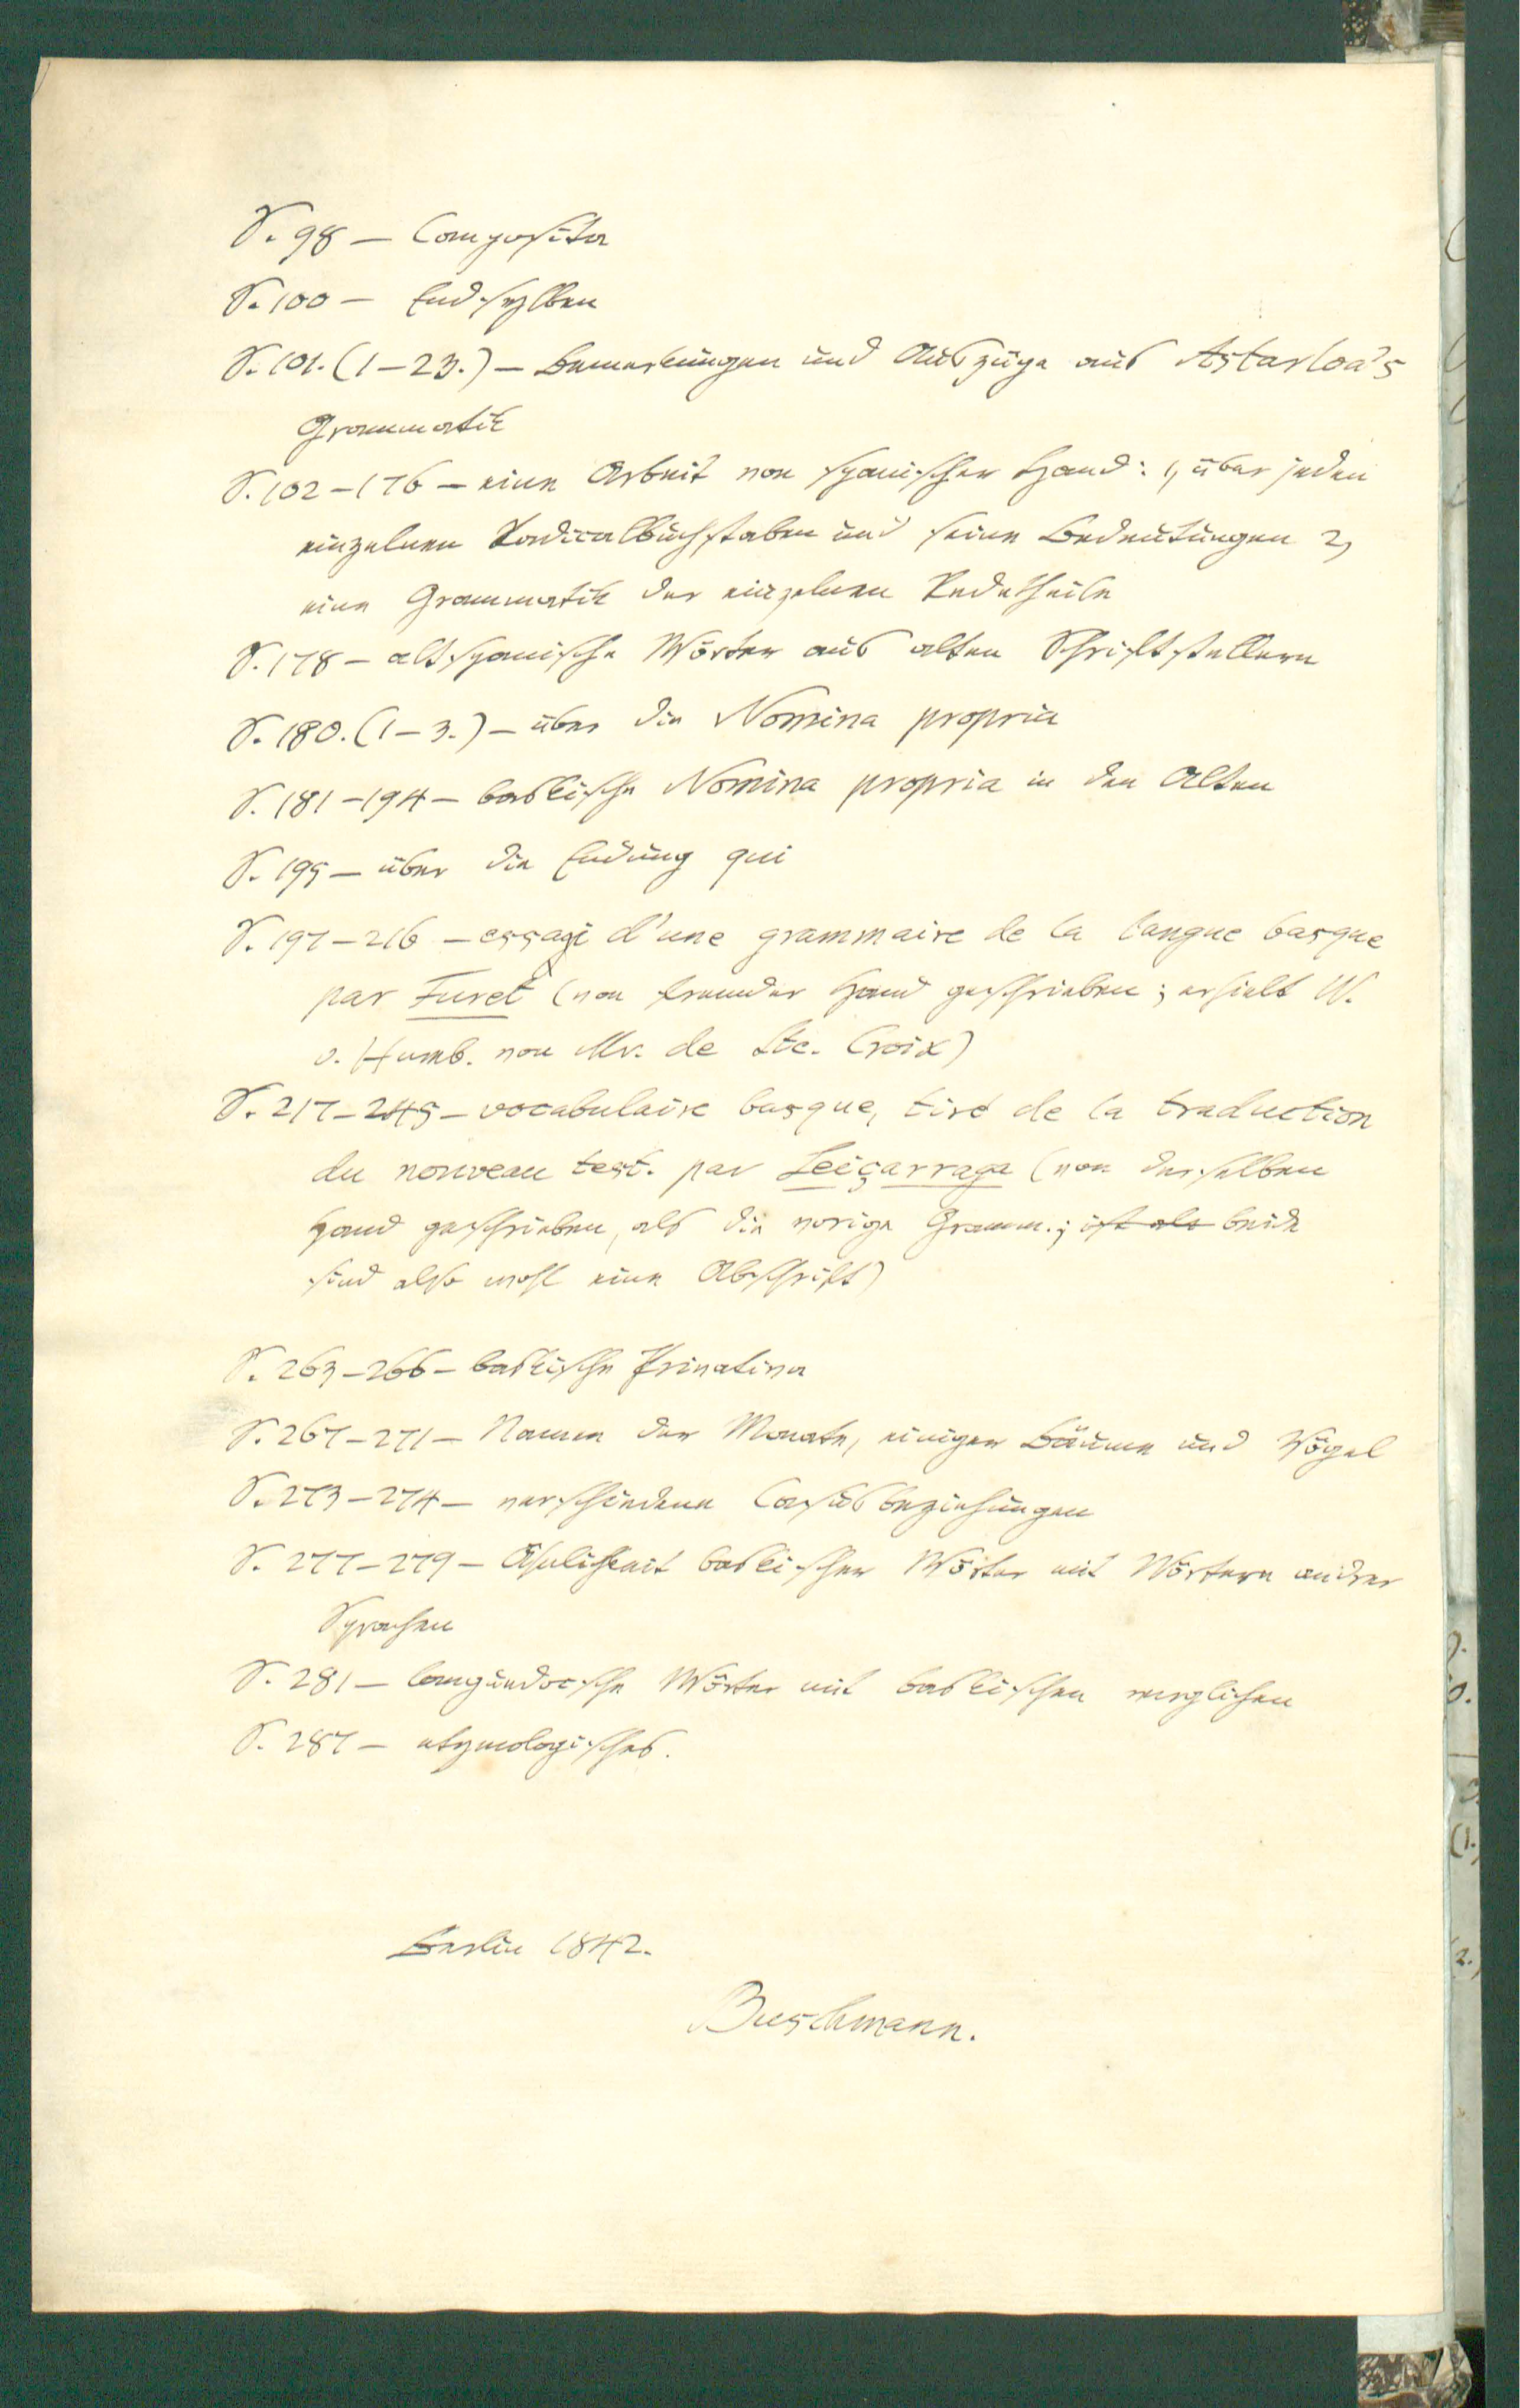 S. 98 — Composita
S. 100 — Endsylben
S. 101. (1–23.) — Bemerkungen und Auszüge aus Astarloa's
Grammatik
S. 102–176 — eine Arbeit von spanischer Hand: 1, über jeden
einzelnen Radicalbuchstaben und seine Bedeutungen 2,
eine Grammatik der einzelnen Redetheile
S. 178 — altspanische Wörter aus alten Schriftstellern
S. 180. (1–3.) — über die Nomina propria
S. 181–194 — baskische Nomina propria in den Alten
S. 195 — über die Endung qui
S. 197–216 — essai d'une grammaire de la langue basque
par Furet (von fremder Hand geschrieben; erhielt W.
v. Humb. von Mr. de Ste. Croix)
S. 217–245 — vocabulaire basque, tiré de la traduction
du nouveau test. par Leiçarraga (von derselben
Hand geschrieben, als die vorige Gramm.; ist als beide
sind also wohl eine Abschrift)
S. 263–266 — baskische Privativa
S. 267–271 — Namen der Monate, einiger Bäume und Vögel
S. 273–274 — verschiedene Casusbeziehungen
S. 277–279 — Ähnlichkeit baskischer Wörter mit Wörtern andrer
Sprachen
S. 281 — languedocsche Wörter mit baskischen verglichen
S. 287 — etymologisches.
Berlin 1842.
Buschmann.